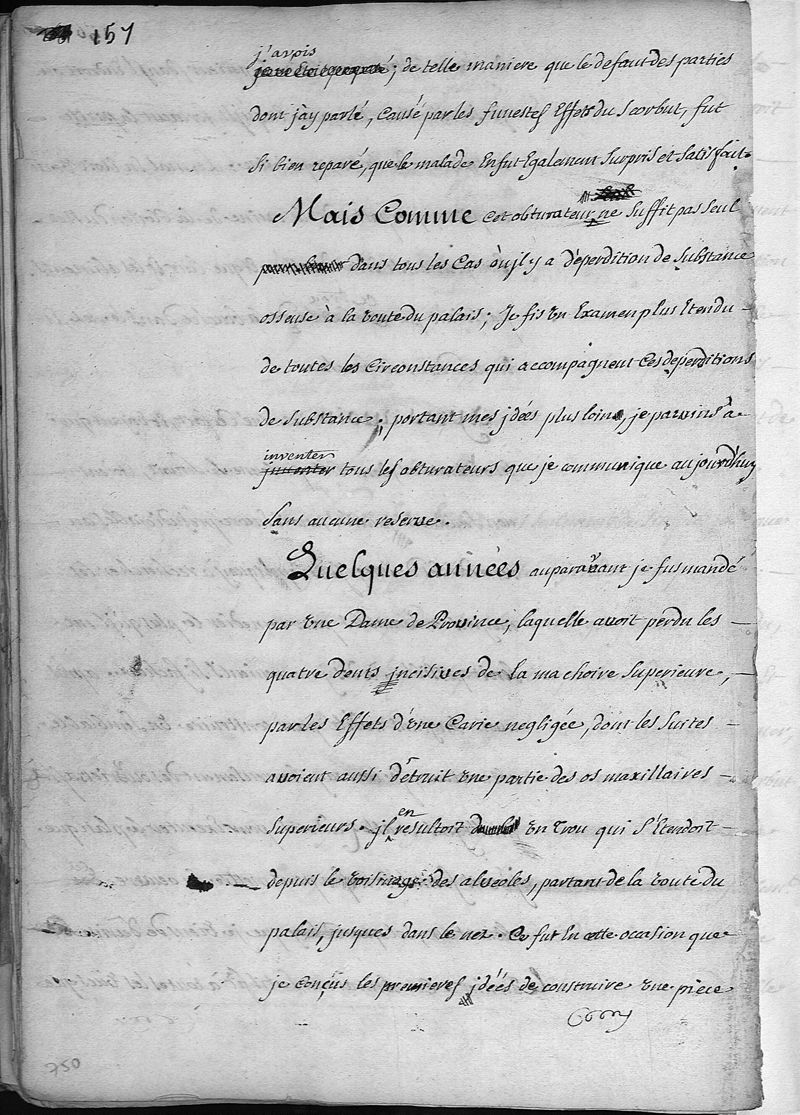 157
j'avois
; de telle maniere que le defaut des parties
dont j'ay parlé, causé par les funestes Effets du Scorbut, fut
Si bien reparé, que le malade En fut Egalement Surpris et Satisfait.
Mais Comme cet obturateur ne Suffit pas Seul
dans tous les Cas où jl y a déperdition de Substance
osseuse à la voute du palais; Je fis vn Examen plus Etendu
de toutes les Circonstances qui accompagnent Ces déperditions
de Substance; portant mes jdées plus loin, je parvins à
inventer
juventer tous les obturateurs que je communique aujourd'huy
Sans aucune reserve.
Quelques années auparavant je fus mandé
par vne Dame de Province, laquelle avoit perdu les
quatre dents jncisives de la machoire Superieure,
par les Effets d'vne Carie negligée, dont les Suites
avoient aussi détruit vne partie des os maxillaires
en
Superieurs. jl resultoit vn Trou qui S'Etendoit
depuis le voisinage des alveoles, partans de la voute du
palais, jusques dans le nez. Ce fut En cette occasion que
je conçus les premieres jdées de construire vne piece
750